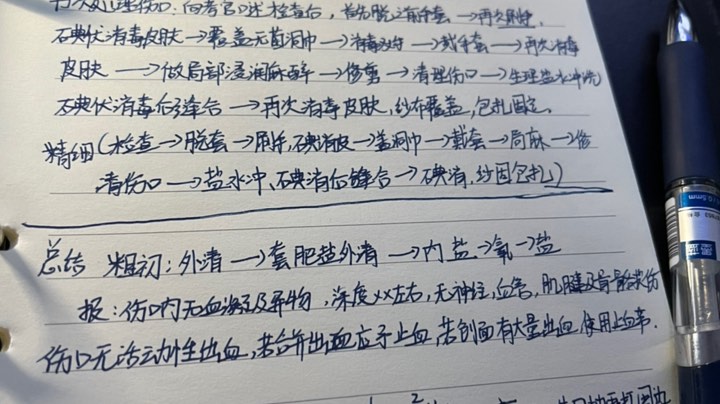 处理伤口:向考官口述检查后,首先脱之前手套→再次刷手,
碘伏消毒皮肤→覆盖无菌洞巾→消毒双手→戴手套→再次消毒
皮肤→做局部浸润麻醉→修剪→清理伤口→生理盐水冲洗
碘伏消毒后缝合→再次消毒皮肤,纱布覆盖,包扎固定。
精细(检查→脱套→刷手,碘消皮→盖洞巾→戴套→局麻→修
清伤口→盐水冲、碘消后缝合→碘消,纱固包扎)
总结 粗初:外清→套肥盐外消→内盐→氧→盐
报:伤口内无血凝及异物,深度XX左右,无神经,血管,肌腱及骨骼损伤
伤口无活动性出血,若合并出血应予止血,若创面有大量出血,使用止血带.
0.5mm